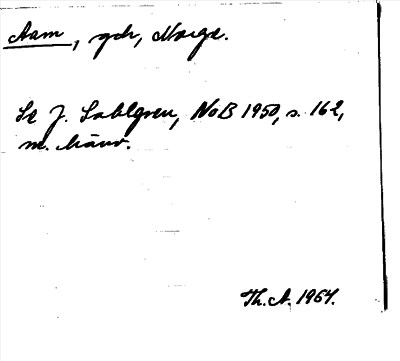 Aam, gdr, Norge.
Se J. Sahlgren, NoB 1950, s. 162,
m. hänv.
Th. A. 1964.